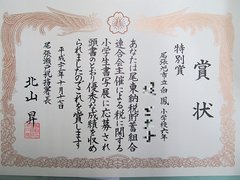 賞状
特別賞
尾張旭市立白鳳小学校六年
あなたは尾東納税貯蓄組合
連合会主催による税に関する
小学生書写展に応募され
頭書のとおり優秀な成績を収め
られましたのでこれを賞します
平成二十年十月十七日
尾張瀬戸税務署長
北山昇